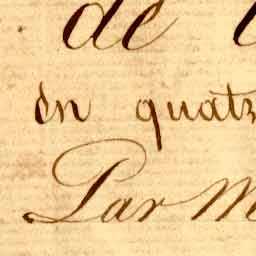 de
en quatr
Par M